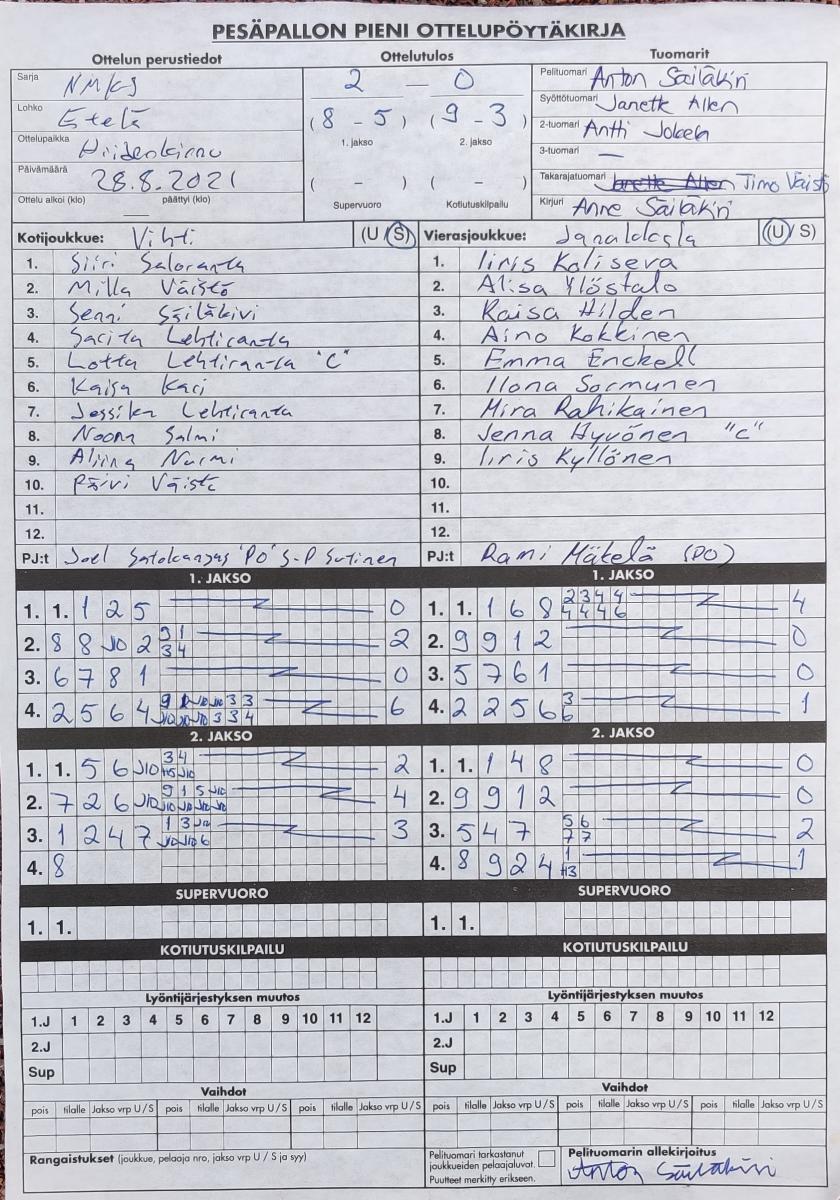 PESÄPALLON PIENI OTTELUPÖYTÄKIRJA
Ottelun perustiedot
Sarja NMKSJ
Lohko Etelä
Ottelupaikka Hiidenkirnu
Päivämäärä 28.8.2021
Ottelu alkoi (klo) — päättyi (klo)
Ottelutulos
2 — 0
(8 - 5) (9 - 3)
1. jakso 2. jakso
( - ) ( - )
Supervuoro Kotiutuskilpailu
Tuomarit
Pelituomari Anton Säiläkivi
Syöttötuomari Janette Allen
2-tuomari Antti Jokela
3-tuomari —
Takarajatuomari Janette Allen Timo Väistö
Kirjuri Anne Säiläkivi
Kotijoukkue: Vihti (U / S)
1. Siiri Saloranta
2. Milla Väistö
3. Senni Säiläkivi
4. Sarita Lehtiranta
5. Lotta Lehtiranta "C"
6. Kaisa Kari
7. Jessika Lehtiranta
8. Noona Salmi
9. Aliina Nurmi
10. Päivi Väistö
11.
12.
PJ:t Joel Satokangas "PO" S-P Sutinen
Vierasjoukkue: Janakkala (U / S)
1. Iiris Koliseva
2. Alisa Ylöstalo
3. Raisa Hilden
4. Aino Kokkinen
5. Emma Enckell
6. Ilona Sormunen
7. Mira Rahikainen
8. Jenna Hyvönen "C"
9. Iiris Kyllönen
10.
11.
12.
PJ:t Rami Mätelä (PO)
1. JAKSO
1. 1. 1 2 5 0
2. 8 8 J10 2 9 1 2
3 4
3. 6 7 8 1 0
4. 2 5 6 4 6
2. JAKSO
1. 1. 5 6 J10 3 4 2
2. 7 2 6 J10 9 1 5 J10 4
3. 1 2 4 7 1 3 J10 3
4. 8
SUPERVUORO
1. 1.
KOTIUTUSKILPAILU
1. JAKSO
1. 1. 1 6 8 2 3 4 4 4
4 4 4 6
2. 9 9 1 2 0
3. 5 7 6 1 0
4. 2 2 5 6 3 1
6
2. JAKSO
1. 1. 1 4 8 0
2. 9 9 1 2 0
3. 5 4 7 5 6 2
7 7
4. 8 9 2 4 1 1
H3
SUPERVUORO
1. 1.
KOTIUTUSKILPAILU
Lyöntijärjestyksen muutos
1.J 1 2 3 4 5 6 7 8 9 10 11 12
2.J
Sup
Vaihdot
pois tilalle Jakso vrp U / S pois tilalle Jakso vrp U / S pois tilalle Jakso vrp U / S
Lyöntijärjestyksen muutos
1.J 1 2 3 4 5 6 7 8 9 10 11 12
2.J
Sup
Vaihdot
pois tilalle Jakso vrp U / S pois tilalle Jakso vrp U / S pois tilalle Jakso vrp U / S
Rangaistukset (joukkue, pelaaja nro, jakso vrp U / S ja syy)
Pelituomari tarkastanut
joukkueiden pelaajaluvat.
Puutteet merkitty erikseen.
Pelituomarin allekirjoitus
Anton Säiläkivi